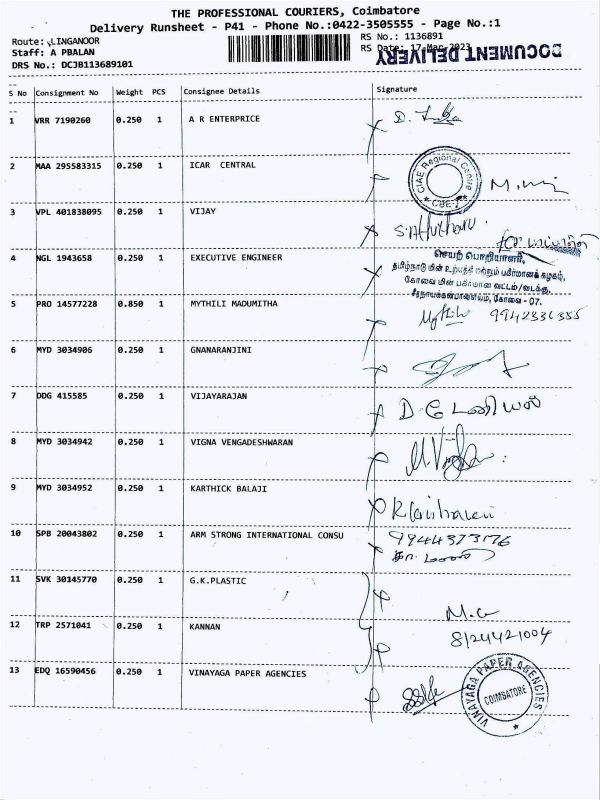 THE PROFESSIONAL COURIERS, Coimbatore
Delivery Runsheet - P41 - Phone No.:0422-3505555 - Page No.:1
Route: LINGANOOR
Staff: A PBALAN
DRS No.: DCJB113689101
RS No.: 1136891
RS Date: 17-Mar-2023
DOCUMENT DELIVERY
S No Consignment No Weight PCS Consignee Details Signature
1 VRR 7190260 0.250 1 A R ENTERPRICE
2 MAA 295583315 0.250 1 ICAR CENTRAL
CIAE Regional Centre
CBE-7
3 VPL 401838095 0.250 1 VIJAY
4 NGL 1943658 0.250 1 EXECUTIVE ENGINEER
செயற் பொறியாளர்,
தமிழ்நாடு மின் உற்பத்தி மற்றும் பகிர்மானக் கழகம்,
கோவை மின் பகிர்மான வட்டம்/வடக்கு,
சீரநாயக்கன்பாளையம், கோவை - 07.
5 PRO 14577228 0.850 1 MYTHILI MADUMITHA
6 MYD 3034906 0.250 1 GNANARANJINI
7 DDG 415585 0.250 1 VIJAYARAJAN
8 MYD 3034942 0.250 1 VIGNA VENGADESHWARAN
9 MYD 3034952 0.250 1 KARTHICK BALAJI
10 SPB 20043802 0.250 1 ARM STRONG INTERNATIONAL CONSU
11 SVK 30145770 0.250 1 G.K.PLASTIC
12 TRP 2571041 0.250 1 KANNAN
8124421004
13 EDQ 16590456 0.250 1 VINAYAGA PAPER AGENCIES
VINAYAGA PAPER AGENCIES
COIMBATORE